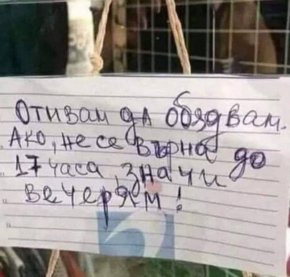 Отивам да обядвам.
Ако, не се върна до
17 часа, значи
вечерям!